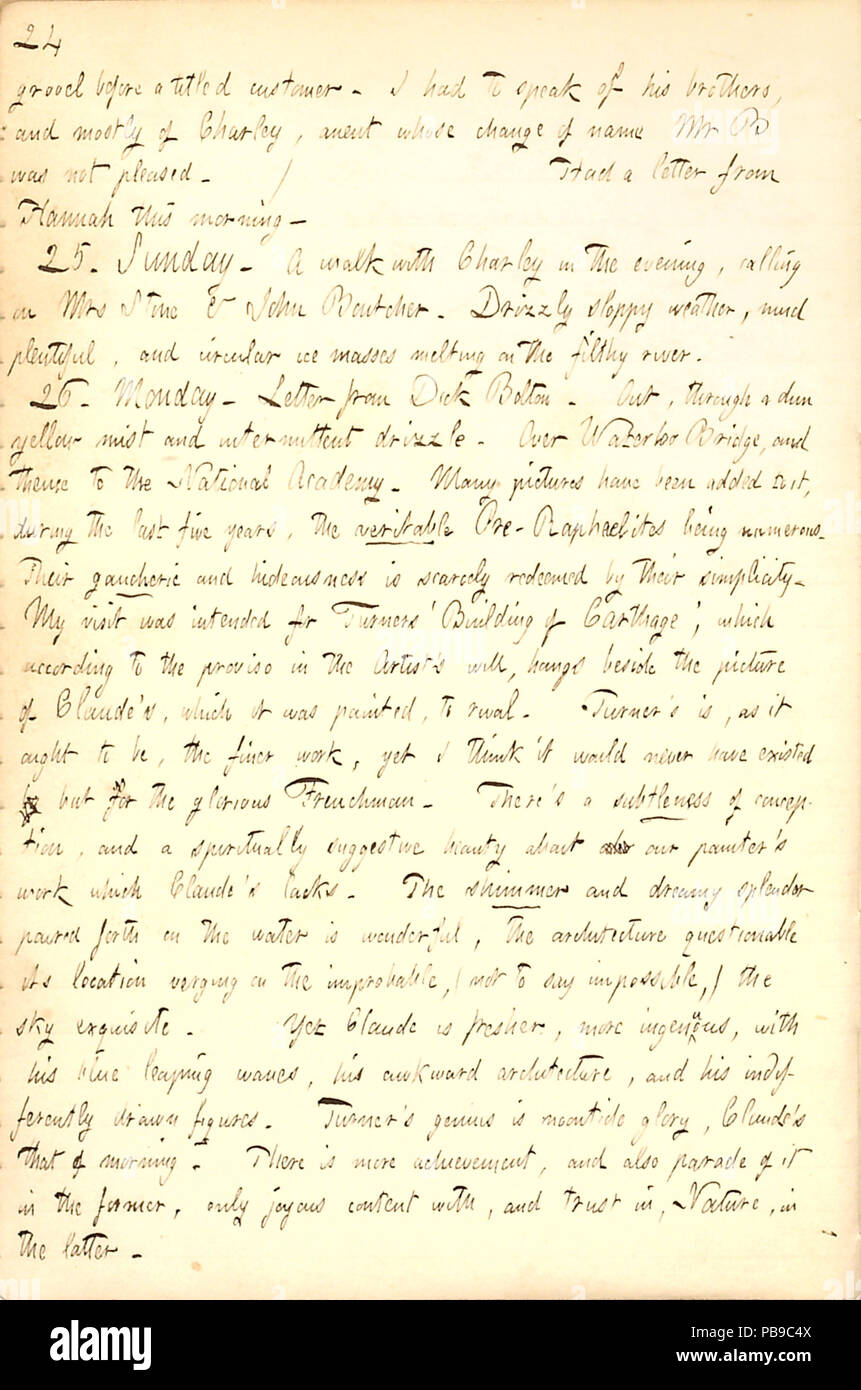 24
grovel before a titled customer. I had to speak of his brothers,
and mostly of Charley, anent whose change of name Mr B
was not pleased. / Had a letter from
Hannah this morning.
25. Sunday. A walk with Charley in the evening, calling
on Mrs Stone & John Boutcher. Drizzly sloppy weather, mud
plentiful, and circular ice masses melting on the filthy river.
26. Monday. Letter from Dick Bolton. Out, through a dun
yellow mist and intermittent drizzle. Over Waterloo Bridge, and
thence to the National Academy. Many pictures have been added to it,
during the last five years, the veritable Pre-Raphaelites being numerous.
Their gaucherie and hideousness is scarcely redeemed by their simplicity.
My visit was intended for Turners' Building of Carthage', which
according to the proviso in the Artist's will, hangs beside the picture
of Claude's, which it was painted, to rival. Turner's is, as it
ought to be, the finer work, yet I think it would never have existed
but for the glorious Frenchman. There's a subtleness of concep-
tion, and a spiritually suggestive beauty about our painter's
work which Claude's lacks. The shimmer and dreamy splendor
poured forth on the water is wonderful, the architecture questionable
its location verging on the improbable, (not to say impossible,) the
sky exquisite. Yet Claude is fresher, more ingenuous, with
his blue leaping waves, his awkward architecture, and his indif-
ferently drawn figures. Turner's genius is noontide glory, Claude's
that of morning. There is more achievement, and also parade of it
in the former, only joyous content with, and trust in, Nature, in
the latter.
alamy
Image ID: PB9C4X
www.alamy.com